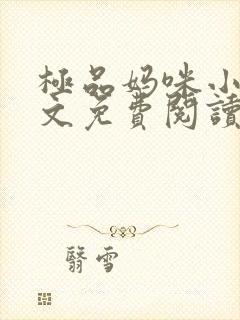 極品妈咪小
文免費閱讀
翳雪